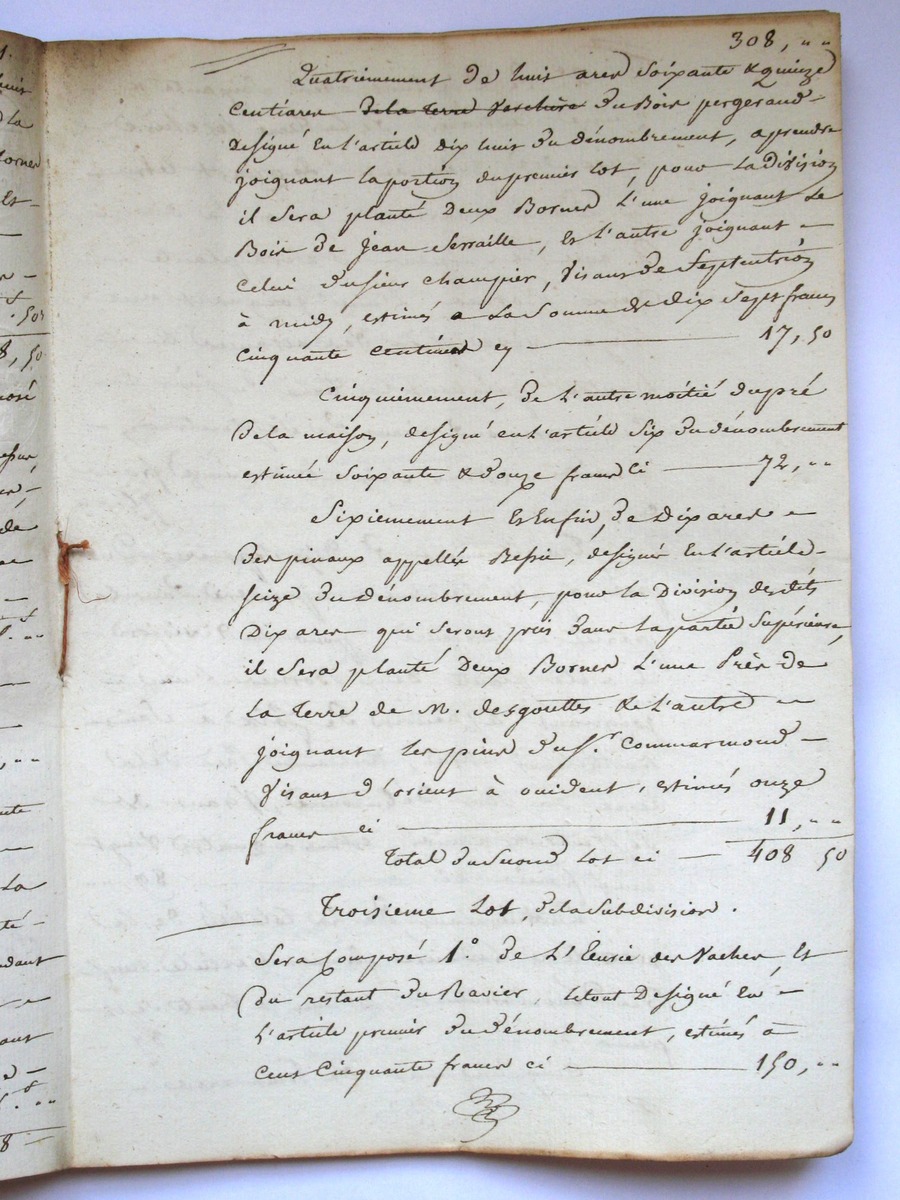 308, " "
Quatriemement de huit ares soixante & quinze
centiares de la terre Verchere du Bois pergeraud
designé en l'article dix huit du dénombrement, a prendre
joignant la portion du premier lot, pour la division
il sera planté deux Bornes l'une joignant le
Bois de jean Serraille, et l'autre joignant
celui du sieur champier, visant de septentrion
à midy, estimés a la somme de dix sept francs
cinquante centimes cy 17, 50
Cinquiemement, de l'autre moitié du pré
de la maison, designé en l'article six du dénombrement
estimée soixante & douze francs ci 72, " "
Sixiemement et Enfin, de dix ares
des pinaux appellés Bessie, designés en l'article
seize du dénombrement, pour la division des dts
dix ares qui seront pris dans la partie supérieure,
il sera planté deux Bornes l'une Près de
la terre de M. desgouttes & l'autre
joignant les pins du sr. commarmond
visant d'orient à occident, estimés onze
francs ci 11, " "
Total du second lot ci 408 50
Troisieme lot, de la subdivision.
Sera composé 1º. de l'Ecurie des vaches, et
du restant du Ravier, le tout designé en
l'article premier du dénombrement, estimés a
cent cinquante francs ci 150, " "